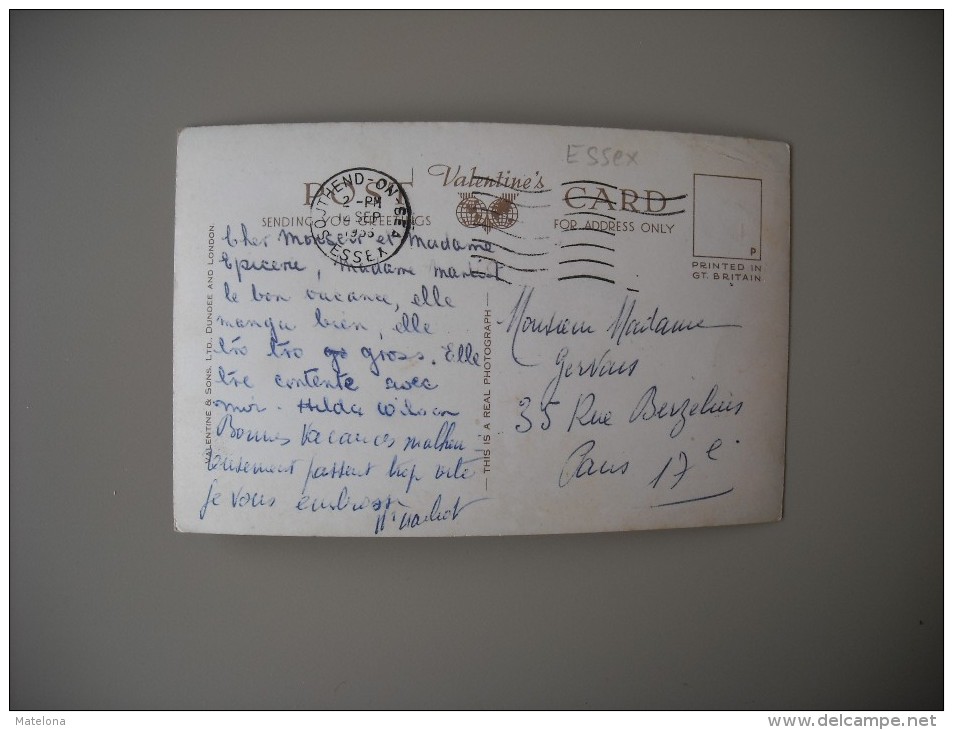 Essex
POST Valentine's CARD
SENDING YOU GREETINGS
FOR ADDRESS ONLY
SOUTHEND-ON-SEA
2 - PM
SEP
ESSEX
P
PRINTED IN
GT. BRITAIN
VALENTINE & SONS, LTD. DUNDEE AND LONDON
THIS IS A REAL PHOTOGRAPH
Cher Monsieur et Madame
Epicerie, Madame
le bon vacance, elle
mangu bien, elle
tro tro gross. Elle
tre contente avec
moi. Hilda Wilson
Bonnes Vacances malheu
reusement passent trop vite
Je vous embrasse
Monsieur Madame
Gervais
35 Rue Berzelius
Paris 17e
Matelona
www.delcampe.net